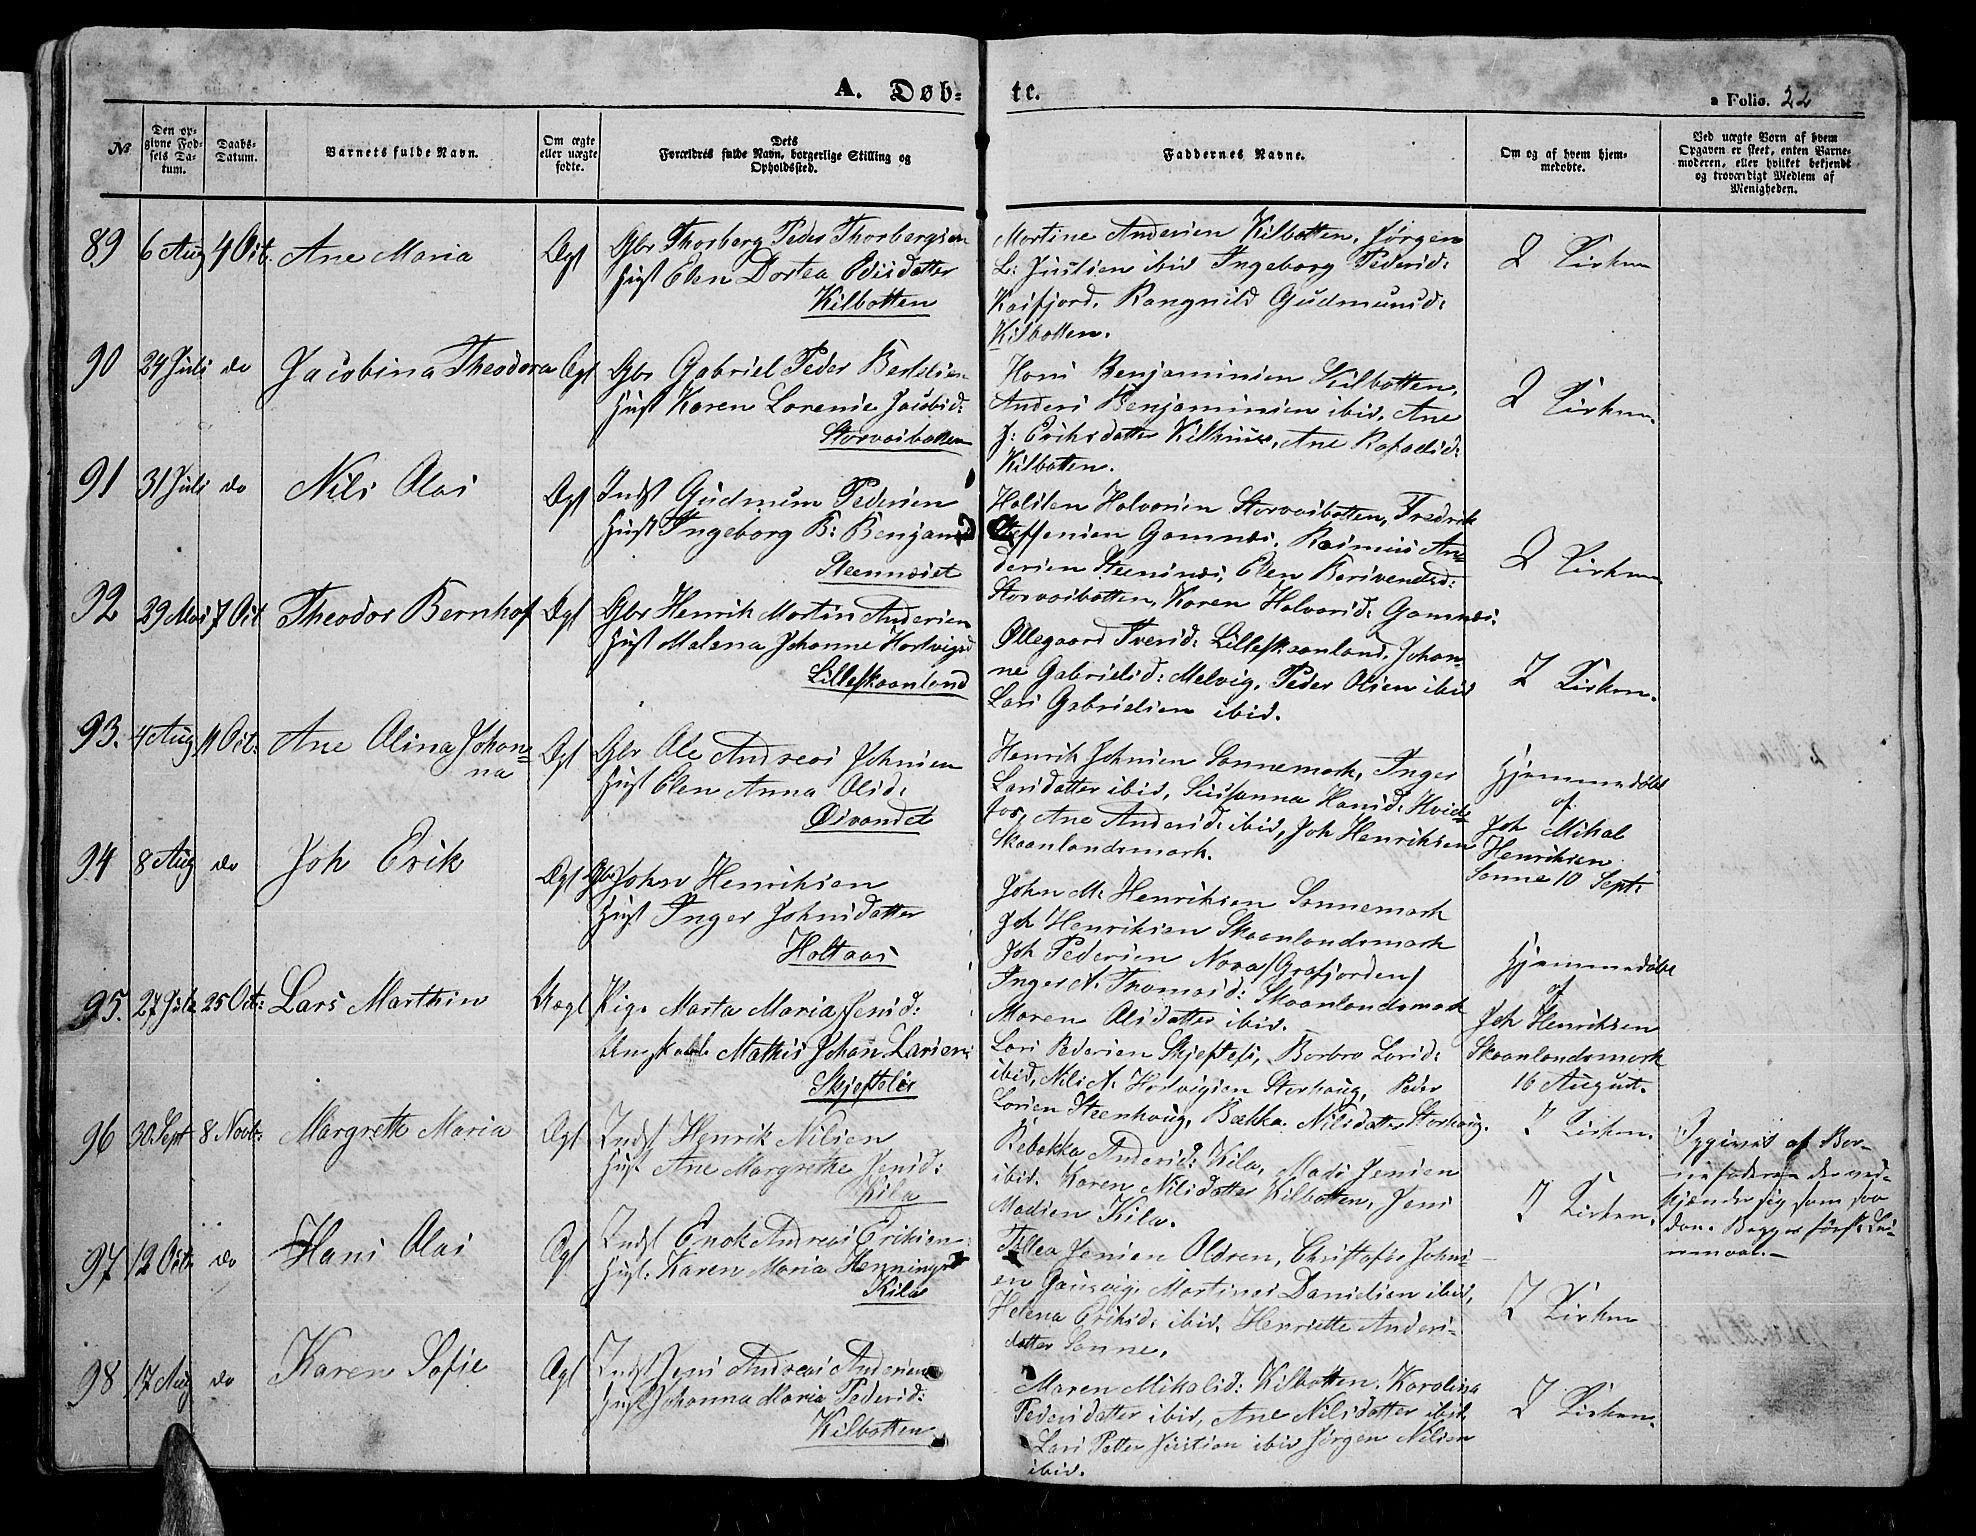 A. Døb-
te.
a Folio. 22
No
Den op-
givne Fød-
sels Da-
tum.
Daabs-
Datum.
Barnets fulde Navn.
Om ægte
eller uægte
fødte.
Dets
Forældres fulde Navn, borgerlige Stilling og
Opholdssted.
Faddernes Navne.
Om og af hvem hjem-
medøbte.
Ved uægte Børn af hvem
Opgaven er skeet, enten Barne-
moderen, eller hvilket bekjendt
og troværdigt Medlem af
Menigheden.
89 6 Aug 4 Oct. Ane Maria Ægt
Gbr Thorberg Peder Thorbergsen
Hust Elen Dortea Edisdatter
Kilbotten
Martine Andersen Kilbotten, Jørgen
L: Justsen ibid Ingeborg Pedersd:
Kasfjord. Rangnild Gudmunsd:
Kilbotten.
I Kirken
90 24 Juli do Jacobina Theodora Ægt
Gbr Gabriel Peder Bertelsen
Hust Karen Lorense Jacobsd:
Storvasbotten
Hans Benjaminsen Kilbotten,
Anders Benjaminsen ibid. Ane
J: Eriksdatter Kilhuus, Ane Rafaelsd:
Kilbotten.
I Kirken.
91 31 Juli do Nils Olai Ægt
Indst Gudmun Pedersen
Hust Ingeborg B: Benjamsd
Steennæset
Halsten Halvorsen Storvasbotten, Fredrik
Steffensen Gamnæs, Rasmus An-
dersen Steensnæs, Elen Berivendsd:
Storvasbotten, Karen Halvorsd: Gamnæs.
I Kirken
92 29 Mai 7 Oct Theodor Bernhof Ægt
Gbr Henrik Martin Andersen
Hust Malena Johanne Hartvigsd
Lilleskaanland
Ollegaard Iversd: Lilleskaanland. Johan-
ne Gabrielsd: Melvig, Peder Olsen ibid
Lars Gabrielsen ibid.
I Kirken.
93. 4 Aug 11 Oct. Ane Olina Johan-
na Ægt
Gbr Ole Andreas Johnsen
Hust Elen Anna Olsd:
Øsvandet
Henrik Johnsen Sannemark, Inger
Larsdatter ibid, Susanna Hansd: Kvide-
for, Ane Andersd: ibid, Joh Henriksen
Skaanlandsmark.
Hjemmedøbt
af
Joh Mikal
Henriksen
Sanne 10 Sept.
94 8 Aug do Joh Erik Ægt
Gbr John Henriksen
Hust Inger Johnsdatter
Holtaas
John M. Henriksen Sannemark
Joh Henriksen Skaanlandsmark
Joh Pedersen Nora/Grafjorden/
Inger A. Thomasd: Skaanlandsmark
Maren Olsdatter ibid.
Hjemmedøbt
af
Joh Henriksen
Skaanlandsmark
16 August.
95. 27 Juli 25 Oct: Lars Marthin Uægt
Pige Marta Maria Jensd:
Ungkarl Mathis Johan Larsen
Skjeftelis
Lars Pedersen Skjeftels, Barbro Larsd:
ibid, Nils A. Hartvigsen Storhaug, Peder
Larsen Steenhaug, Bækka Nilsdatter Storhaug.
I Kirken.
Opgivet af Bar-
nefaderen der ved-
kjender sig som saa
dan. Begges første Lei-
ermaal.
96 30 Sept 8 Novb: Margrethe Maria Ægt
Indst Henrik Nilsen
Hust Ane Margrethe Jensd:
Kila
Rebakka Andersd: Kila, Mads Jensen
ibid. Karen Nilsdatter Kilbotten, Jens
Madsen Kila.
I Kirken.
97 12 Octr do Hans Olai Ægt
Indst Enok Andreas Eriksen
Hust. Karen Maria Henningsd
Kila
Tillea Jensen Oldren, Christofer Johns-
en Gausvig, Martines Danielsen ibid,
Helena Eriksd: ibid, Henriette Anders-
datter Sanne.
I Kirken
98 17 Aug do Karen Sofie Ægt
Indst Jens Andreas Andersen
Hust Johanna Maria Pedersd:
Kilbotten
Maren Mikalsd: Kilbotten. Karolina
Pedersdatter ibid, Ane Nilsdatter ibid,
Lars Petter Justsen ibid Jørgen Nilsen
ibid.
I Kirken.